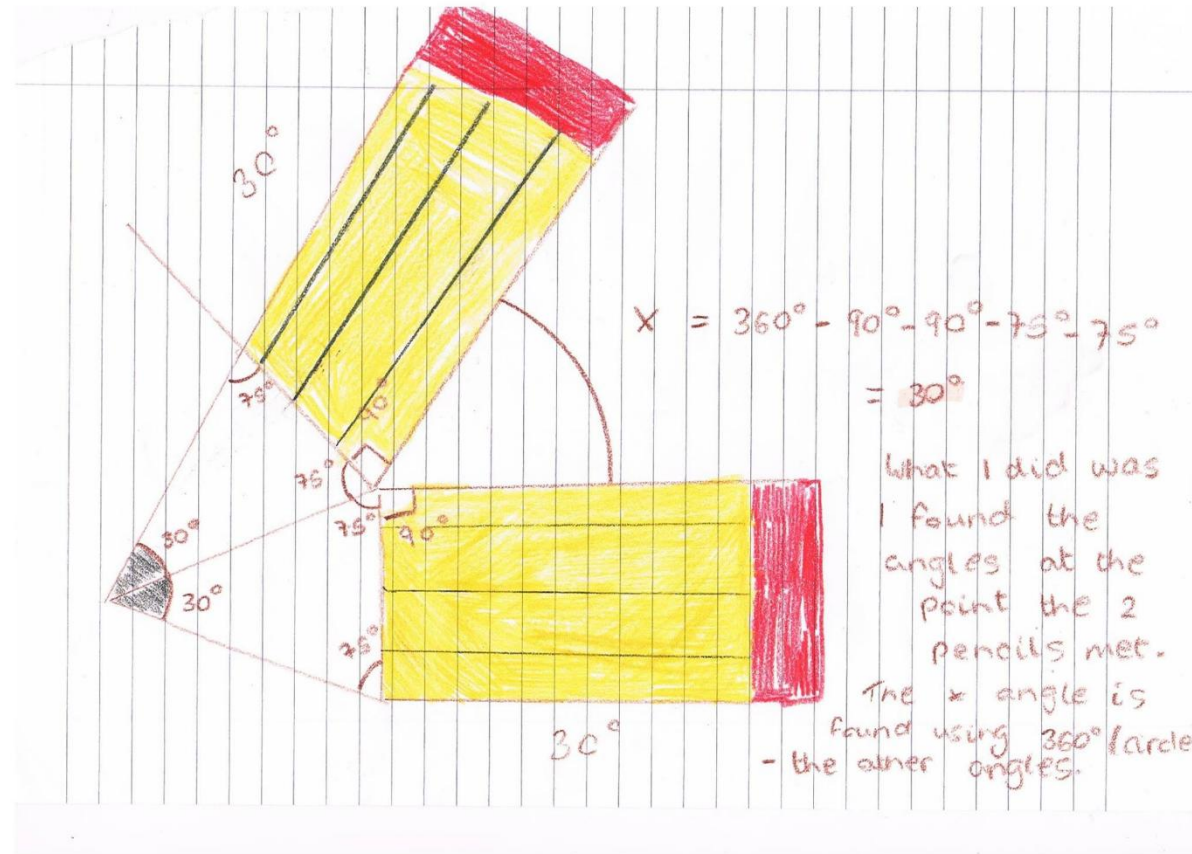 30°
75°
90°
75°
75°
90°
30°
30°
75°
30°
x = 360° - 90° - 90° - 75° - 75°
= 30°
What I did was
I found the
angles at the
point the 2
pencils met.
The x angle is
found using 360°/circle
- the other angles.